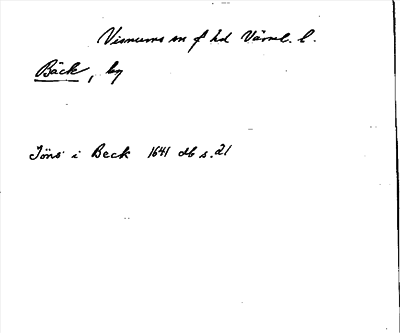 Visnums sn f hd Värml. l.
Bäck, by
Jöns i Beck 1641 db s. 21